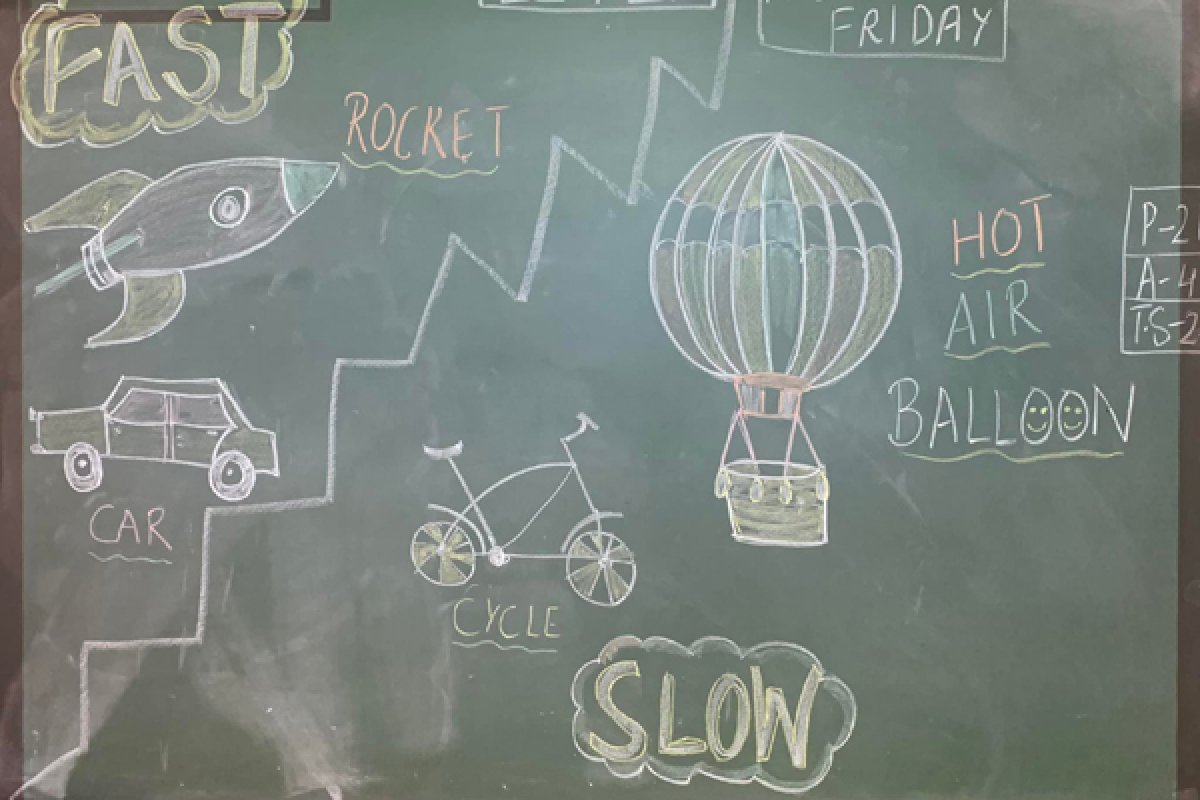 FAST
FRIDAY
ROCKET
HOT
AIR
BALLOON
P-2
A-4
T.S-2
CAR
CYCLE
SLOW